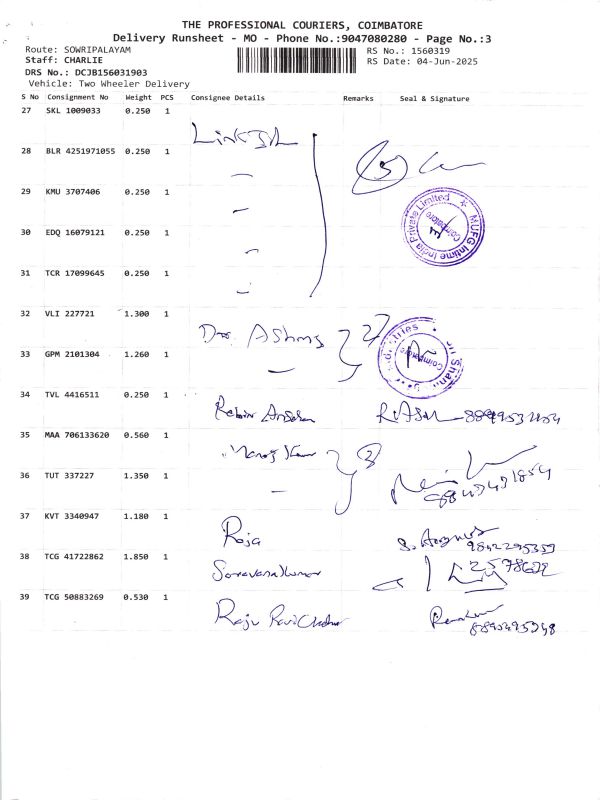 THE PROFESSIONAL COURIERS, COIMBATORE
Delivery Runsheet - MO - Phone No.:9047080280 - Page No.:3
Route: SOWRIPALAYAM
RS No.: 1560319
Staff: CHARLIE
RS Date: 04-Jun-2025
DRS No.: DCJB156031903
Vehicle: Two Wheeler Delivery
S No Consignment No Weight PCS Consignee Details Remarks Seal & Signature
27 SKL 1009033 0.250 1
28 BLR 4251971055 0.250 1
29 KMU 3707406 0.250 1
MUFG Intime India Private Limited
Coimbatore
30 EDQ 16079121 0.250 1
31 TCR 17099645 0.250 1
32 VLI 227721 1.300 1
33 GPM 2101304 1.260 1
Coimbatore
34 TVL 4416511 0.250 1
35 MAA 706133620 0.560 1
36 TUT 337227 1.350 1
37 KVT 3340947 1.180 1 Raja
9842295359
38 TCG 41722862 1.850 1 Saravanakumar
39 TCG 50883269 0.530 1 Raju